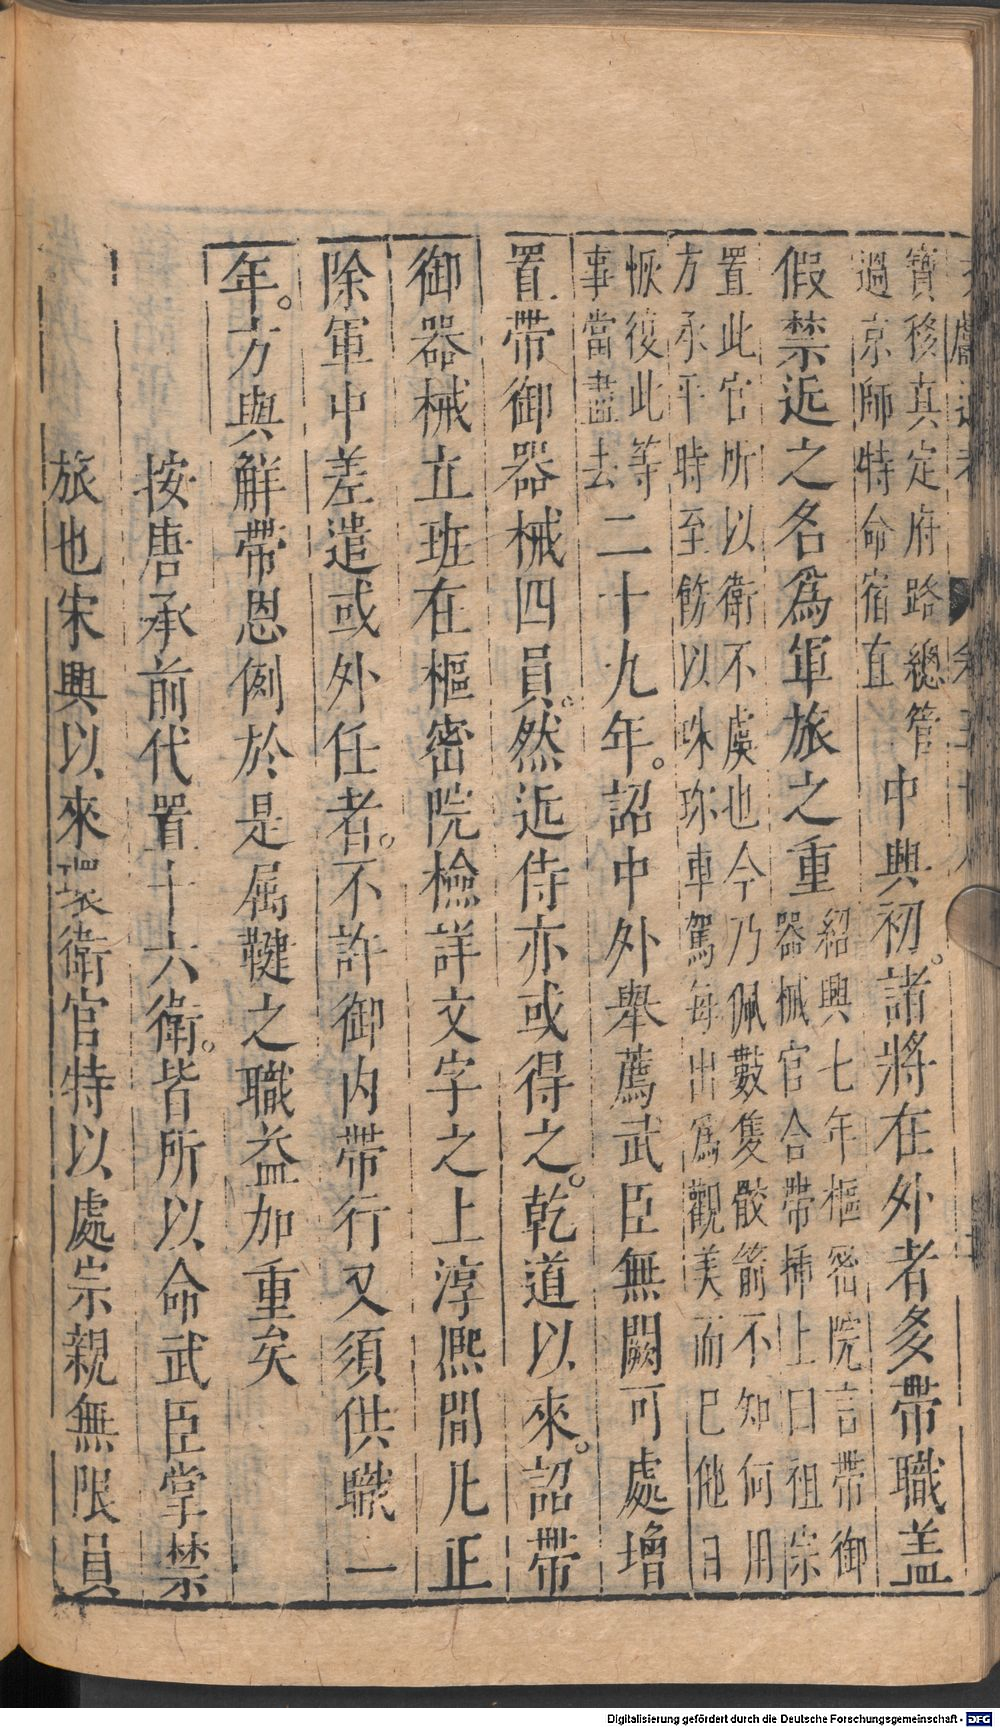 寶移真定府路總管
過京師特命宿直
中興初。諸將在外者多帶職蓋
假禁近之名為軍旅之重
紹興七年樞密院言帶御
器械官合帶揷上曰祖宗
置此官所以衛不虞也今乃佩數隻骰箭不知何用
方承平時至飭以珠珎車駕每出為觀美而已他日
恢復此等
事當盡去
二十九年。詔中外舉薦武臣無闕可處增
置帶御器械四員。然近侍亦或得之。乾道以來。詔帶
御器械立班在樞密院檢詳文字之上淳熈間凡正
除軍中差遣或外任者。不許御內帶行又須供職一
年。方與解帶恩例於是屬鞬之職益加重矣
按唐承前代置十六衛。皆所以命武臣掌禁
旅也宋興以來環衛官特以處宗親無限員
Digitalisierung gefördert durch die Deutsche Forschungsgemeinschaft - DFG